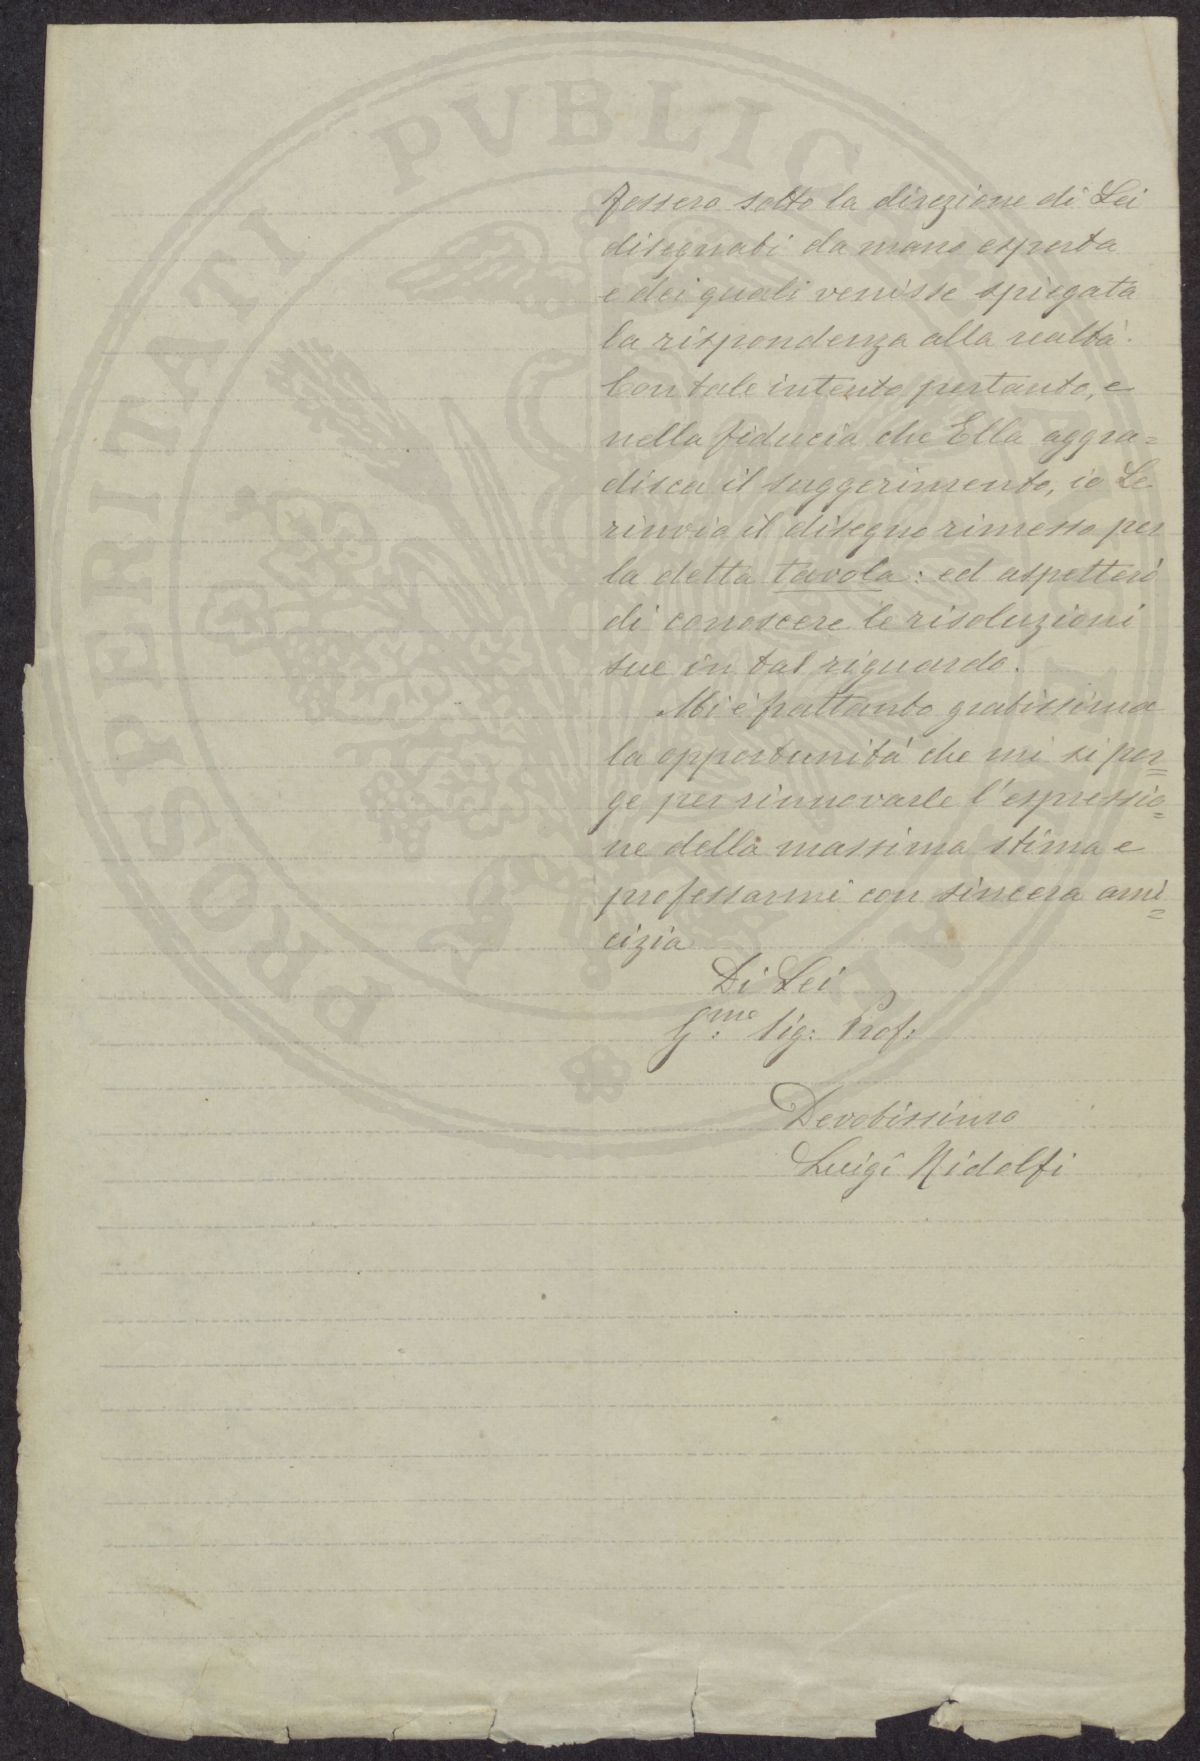 fossero sotto la direzione di Lei
disegnati da mano esperta
e dei quali venisse spiegata
la rispondenza alla realtà.
Con tale intento pertanto, e
nella fiducia che Ella aggra=
disca il suggerimento, io Le
rinvio il disegno rimesso per
la detta tavola: ed aspetterò
di conoscere le risoluzioni
sue in tal riguardo.
Mi è frattanto gratissima
la opportunità che mi si por=
ge per rinnovarle l'espressio=
ne della massima stima e
professarmi con sincera ami=
cizia
Di Lei
Sig: Prof:
Devotissimo
Luigi Ridolfi
PROSPERITATI PVBLICAE